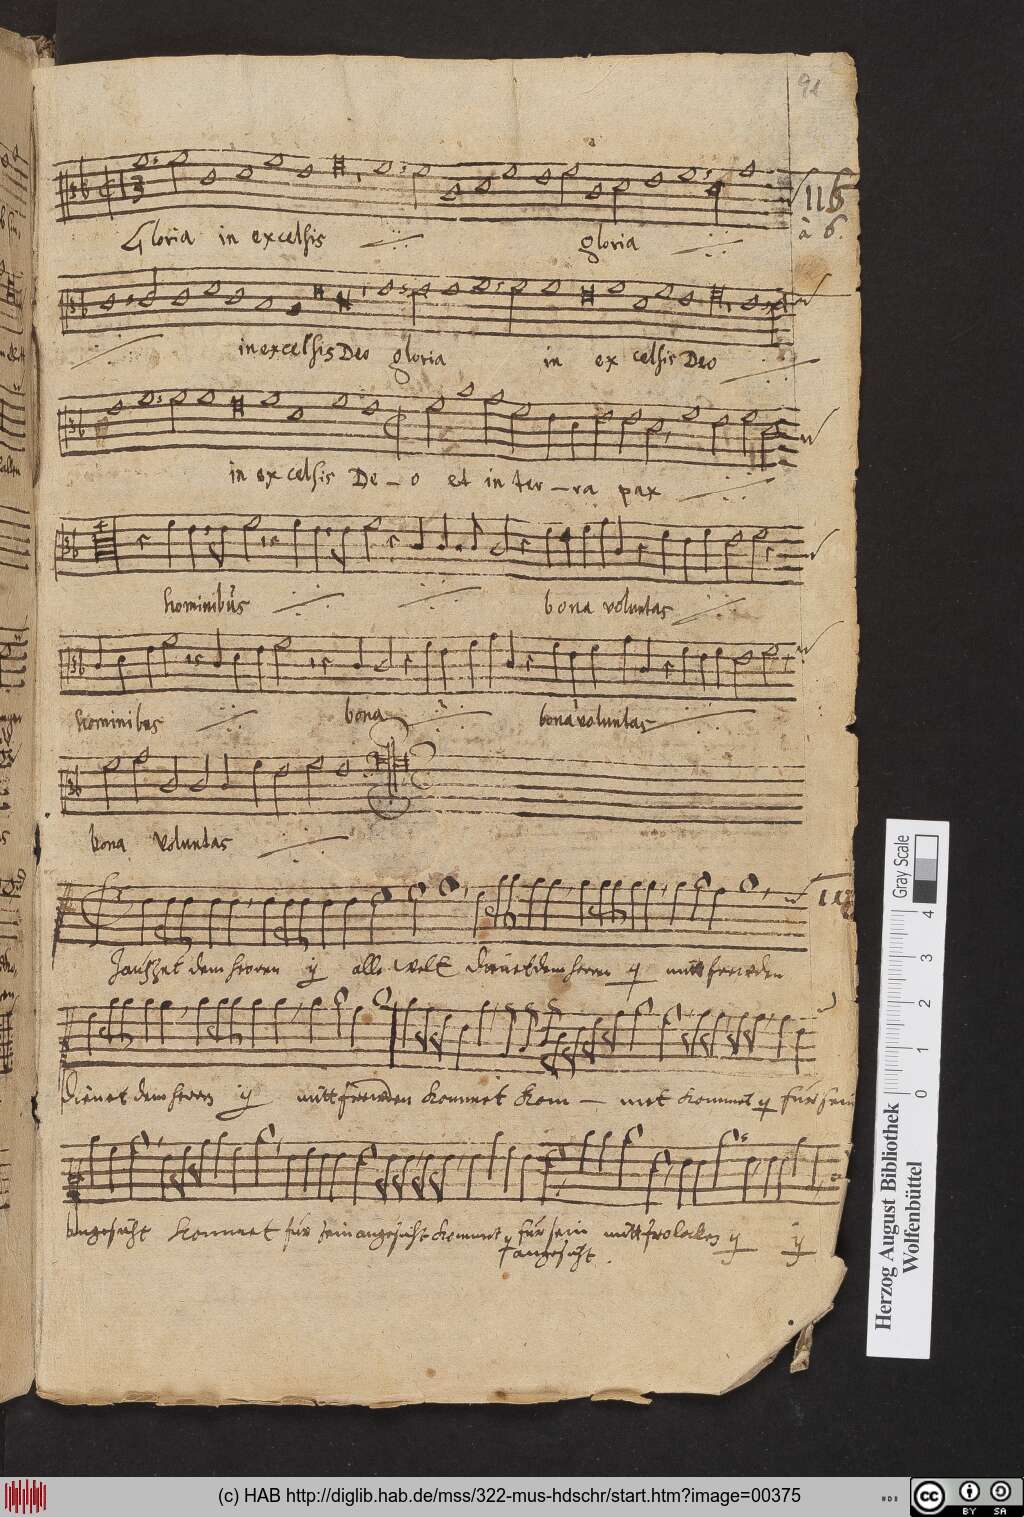 91
116
à 6.
Gloria in excelsis gloria
in excelsis Deo gloria in excelsis Deo
in excelsis De - o et in ter - ra pax
hominibus bona voluntas
hominibus bona bona voluntas
bona voluntas
Jauchzet dem herren ij alle Welt Dienet dem herrn ij mitt frewden
Dienet dem herrn ij mitt frewden kommet kom - met kommet ij für sein
angesicht kommet für sein angesicht kommet ij für sein mitt frolocken ij ij
angesicht.
Gray Scale
0 1 2 3 4
Herzog August Bibliothek
Wolfenbüttel
(c) HAB http://diglib.hab.de/mss/322-mus-hdschr/start.htm?image=00375
cc BY SA